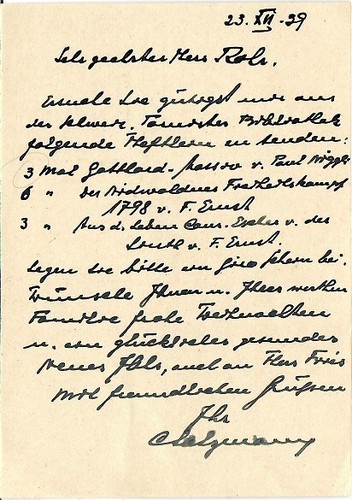 23. XII. 39
Sehr geehrter Herr Rohr.
Ersuche Sie gütigst mir aus
der schweiz. Tornister Bibliothek
folgende Heftlein zu senden:
3 mal Gotthard- v. Paul
6 " Der Nidwaldner Freiheitskampf
1798 v. F. Ernst
3 " Aus d. Leben Conr. Escher v. der
Linth v. F. Ernst.
Legen Sie bitte ein Giro schein bei.
Wünsche Ihnen u. Ihrer werthen
Familie frohe Weihnachten
u. ein glückliches gesundes
Neues Jahr, auch an Herr
Mit freundlichen Grüssen
Ihr